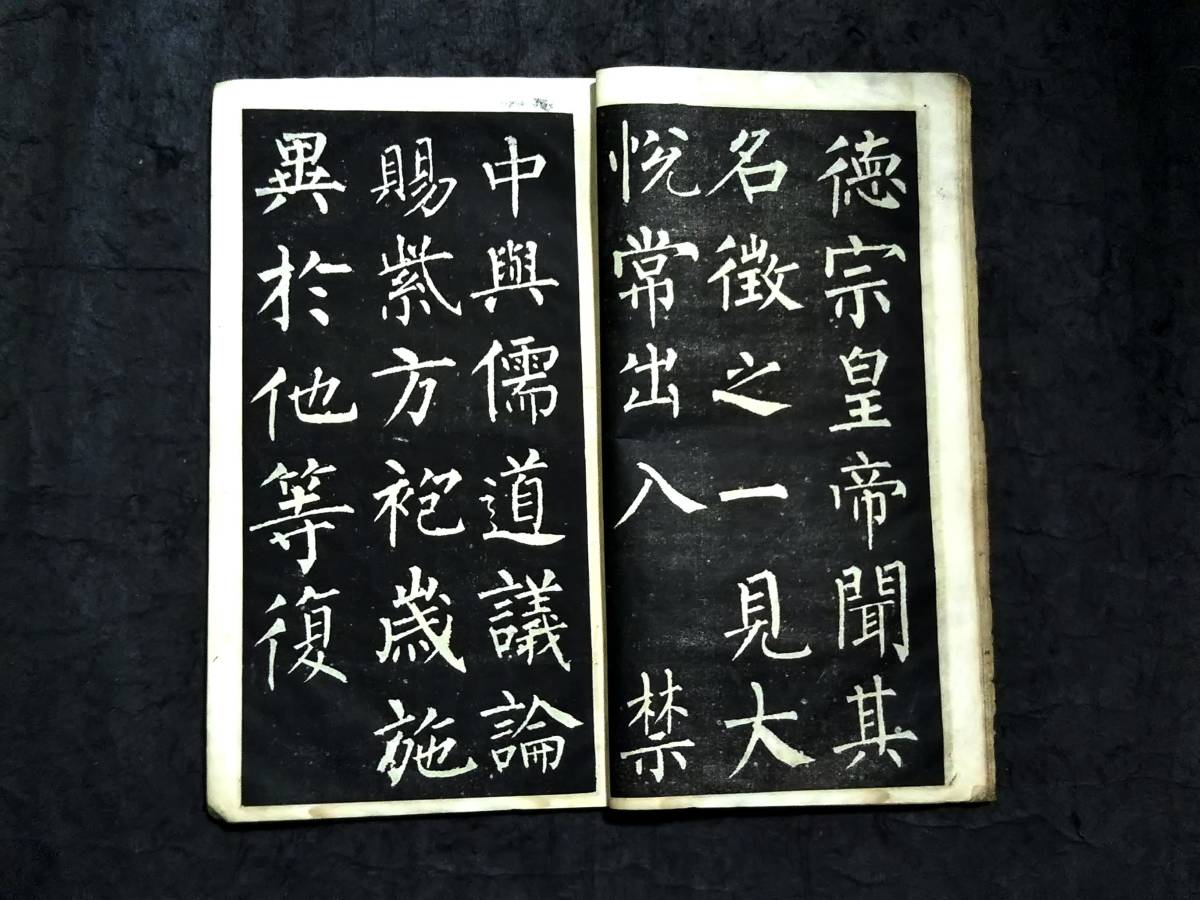 德宗皇帝聞其
名徵之一見大
悅常出入禁
中與儒道議論
賜紫方袍歲施
異於他等復